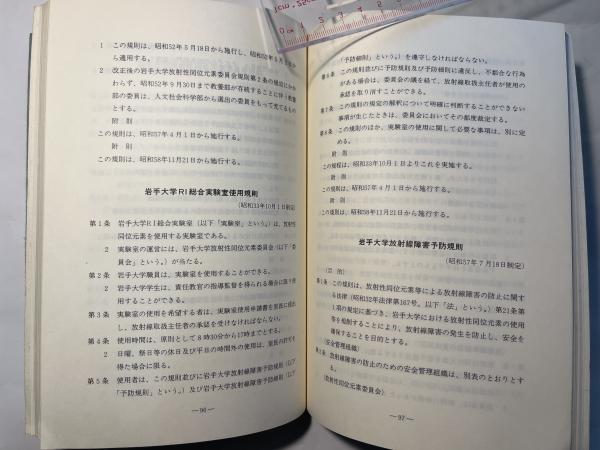 1 この規則は、昭和52年5月18日から施行し、昭和52年5月2日か
ら適用する。
2 改正後の岩手大学放射性同位元素委員会規則第2条の規定にかか
わらず、昭和52年9月30日まで教養部が存続することに伴う教養
部の委員は、人文社会科学部から選出の委員をもって充てるもの
とする。
附 則
この規則は、昭和57年4月1日から施行する。
附 則
この規則は、昭和58年11月21日から施行する。
岩手大学RI総合実験室使用規則
(昭和33年10月1日制定)
第1条 岩手大学RI総合実験室(以下「実験室」という。)は、放射性
同位元素を使用する実験室である。
2 実験室の運営には、岩手大学放射性同位元素委員会(以下「委
員会」という。)が当たる。
第2条 岩手大学職員は、実験室を使用することができる。
2 岩手大学学生は、責任教官の指導監督を得られる場合に限り使
用することができる。
第3条 実験室の使用を希望する者は、実験室使用申請書を室長に提出
し、放射線取扱主任者の承認を受けなければならない。
第4条 使用時間は、原則として8時30分から17時までとする。
2 日曜、祭日等の休日及び平日の時間外の使用は、室長の許可を
得た場合に限る。
第5条 使用者は、この規則並びに岩手大学放射線障害予防規則(以下
「予防規則」という。)及び岩手大学放射線障害予防細則(以下
—96—
「予防細則」という。)を遵守しなければならない。
第6条 この規則並びに予防規則及び予防細則に違反し、不都合な行為
がある場合は、委員会の議を経て、放射線取扱主任者が使用の
承認を取り消すことができる。
第7条 この規則の規定の解釈について明確に判断することができない
事項が生じたときは、委員会においてその都度裁定する。
第8条 この規則のほか、実験室の使用に関して必要な事項は、別に定
める。
附 則
この規程は、昭和33年10月1日よりこれを実施する。
附 則
この規則は、昭和57年4月1日から施行する。
附 則
この規則は、昭和58年11月21日から施行する。
岩手大学放射線障害予防規則
(昭和57年7月18日制定)
(目 的)
第1条 この規則は、放射性同位元素等による放射線障害の防止に関す
る法律(昭和32年法律第167号。以下「法」という。)第21条第
1項の規定に基づき、岩手大学における放射性同位元素の使用
等を規制することにより、放射線障害の発生を防止し、安全を
確保することを目的とする。
(安全管理組織)
第2条 放射線障害の防止のための安全管理組織は、別表のとおりとす
る。
(放射性同位元素委員会)
—97—